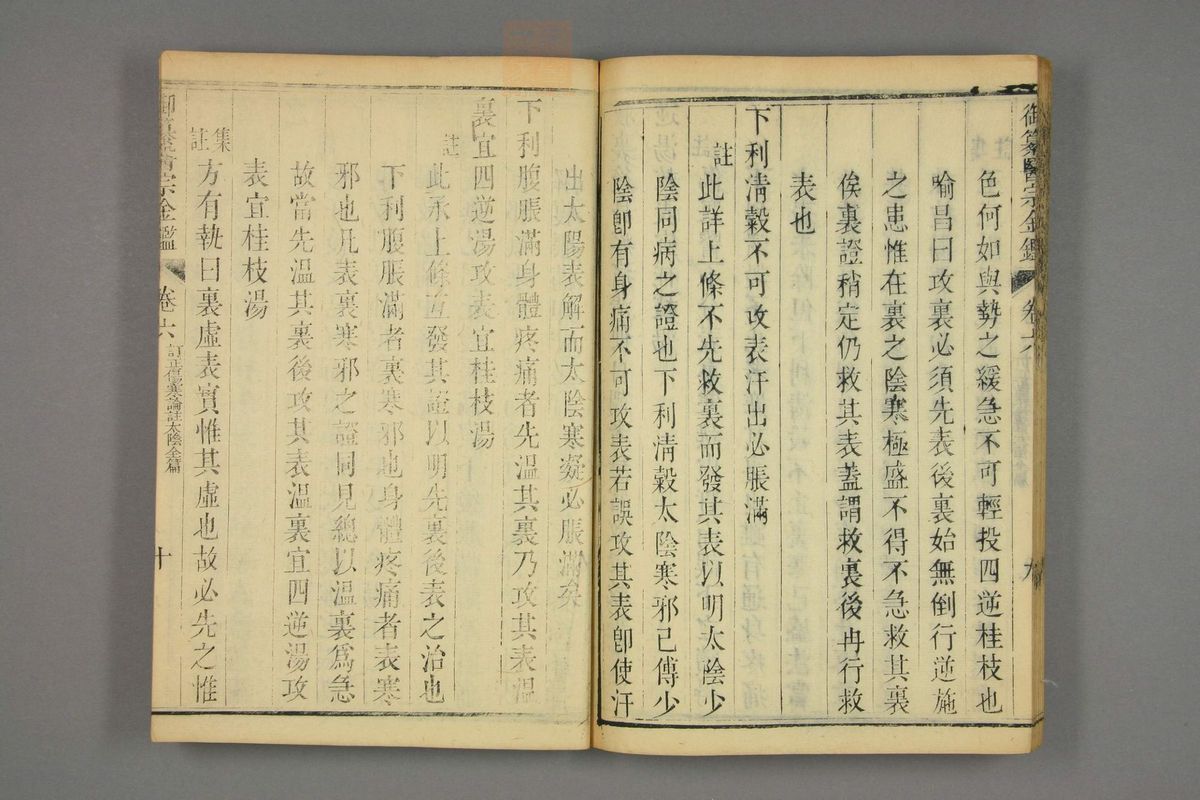 御纂醫宗金鑑 卷六 九
色何如與勢之緩急不可輕投四逆桂枝也
喻昌曰攻裏必須先表後裏始無倒行逆施
之患惟在裏之陰寒極盛不得不急救其裏
俟裏證稍定仍救其表蓋謂救裏後冉行救
表也
下利淸穀不可攻表汗出必脹滿
註 此詳上條不先救裏而發其表以明太陰少
陰同病之證也下利淸穀太陰寒邪已傳少
陰卽有身痛不可攻表若誤攻其表卽使汗
出太陽表解而太陰寒凝必脹滿矣
下利腹脹滿身體疼痛者先溫其裏乃攻其表溫
裏宜四逆湯攻表宜桂枝湯
註 此承上條互發其證以明先裏後表之治也
下利腹脹滿者裏寒邪也身體疼痛者表寒
邪也凡表裏寒邪之證同見總以溫裏爲急
故當先溫其裏後攻其表溫裏宜四逆湯攻
表宜桂枝湯
集註 方有執曰裏虛表實惟其虛也故必先之惟
御纂醫宗金鑑 卷六 訂正傷寒論註太陰全篇 十